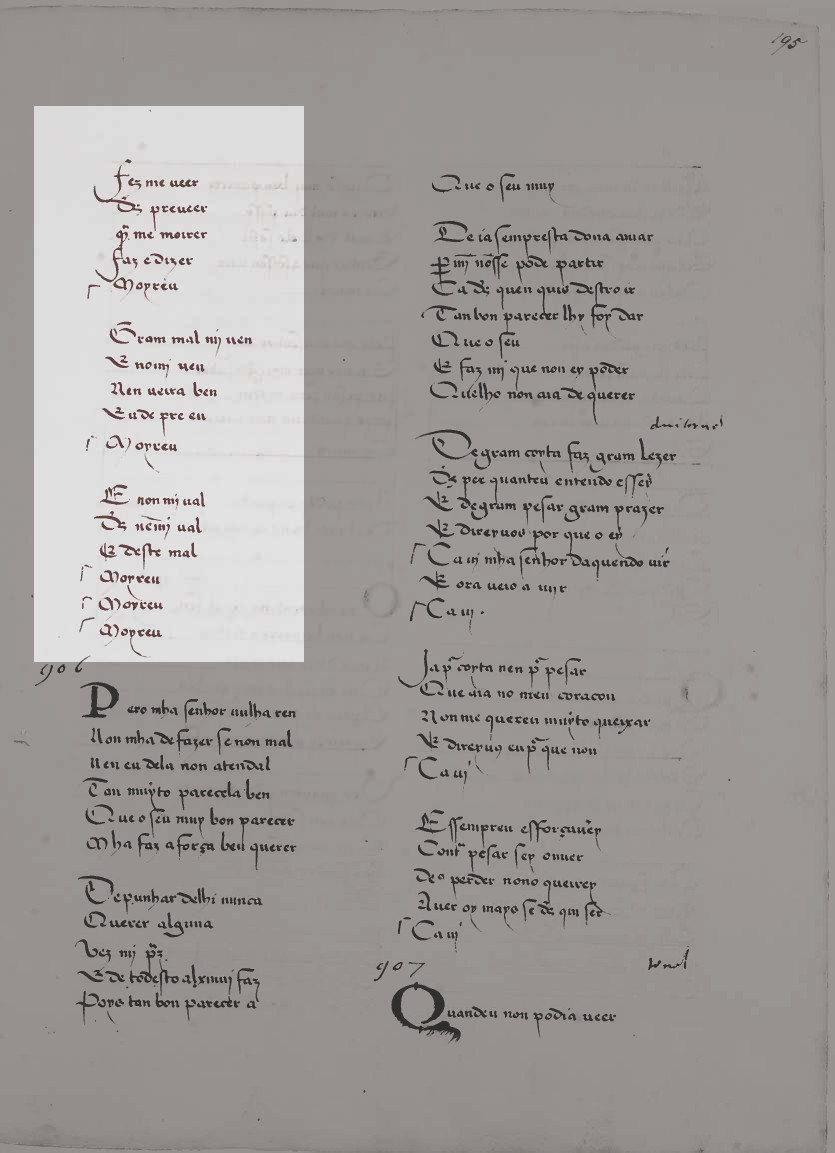 195
Fez me ueer
Ds̄ preueer
q̄ me moirer
faz e dizer
Moyreu
Gram mal mj uen
E nomj uen
Nen ueira ben
E ude pre eu
Moyreu
E non mj ual
Ds̄ nēmj ual
E deste mal
Moyreu
Moyreu
Moyreu
906
Pero mha senhor nulha ren
Non mha de fazer se non mal
Nen eu dela non atendal
Tan muyto parecela ben
Que o seu muy bon parecer
Mha faz aforça ben querer
De punhar delhi nunca
Querer alguna
Vez mj
E de todesto alxmuj faz
Poys tan bon parecer a
Que o seu muy
De ia sempresta dona amar
nōsse pode partir
Ca ds̄ quen quis destroir
Tan bon parecer lhy foy dar
Que o seu
E faz mj que non ey poder
Quelho non aia de querer
De gram coyta faz gram lezer
Ds̄ per quanteu entendo esser
E degram pesar gram prazer
E direyuos por que o ey
Ca uj mha senhor daquendo uir
E ora ueio a uiir
Ca uj.
Ja pͣ coyta nen pͣ pesar
Que aia no meu coraçon
Non me quereu muyto queixar
E direyuꝯ eu pͣ que non
Ca uj
E ssempreu esforçauey
Contͣ pesar sey ouuer
De o perder nono queirey
Auer oy mays se ds̄ qui ser
Ca uj
907
Quandeu non podia ueer